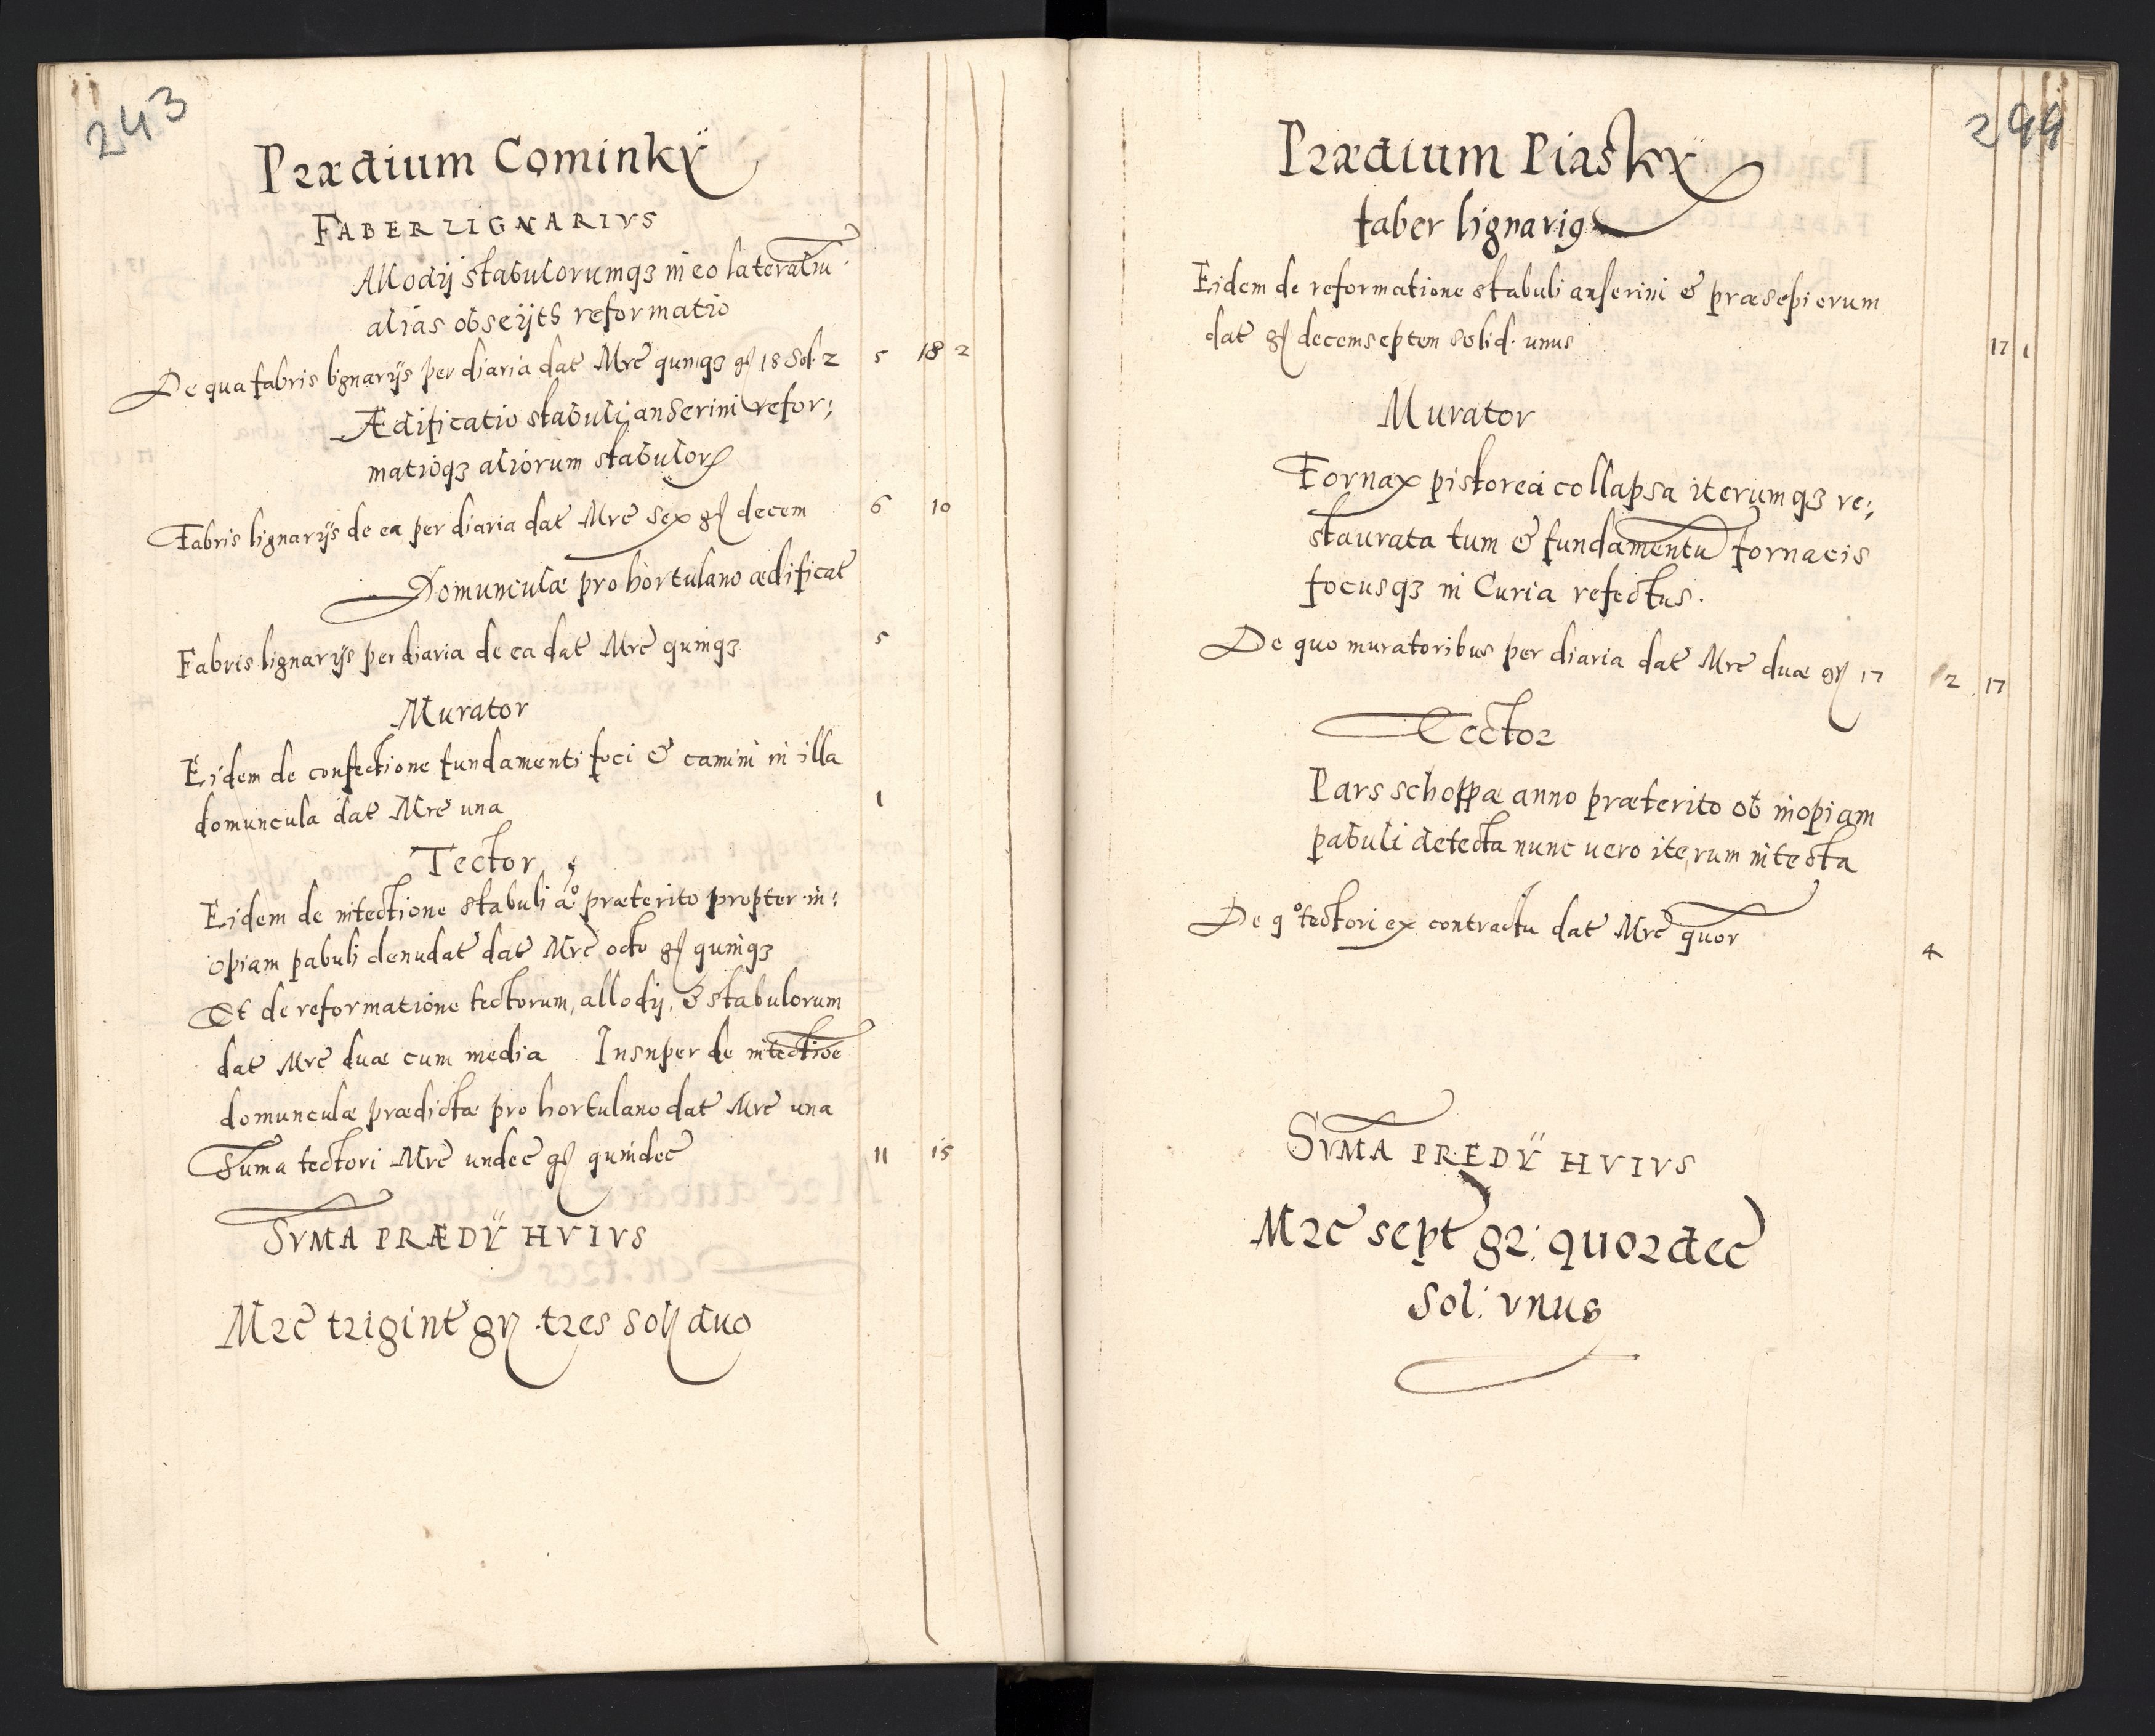 243
Prædium Cominkÿ
FABER LIGNARIVS
Allodij stabulorumqꝫ in eo lateraliu
alias obseijts reformatio
De qua fabris lignarijs per diaria dat Mrc quinqꝫ gr 18 Sol. 2 5 18 2
Ædificatio stabuli anserini refor:
matioqꝫ aliorum stabulor
Fabris lignarijs de ea per diaria dat Mrc sex gr decem 6 10
Domunculæ pro hortulano ædificat
Fabris lignarijs per diaria de ea dat Mrc quinqꝫ 5
Murator
Eidem de confectione fundamenti foci & camini in illa
domuncula dat Mrc una 1
Tector
Eidem de intectione stabuli aº præterito propter in:
opiam pabuli denudat dat Mrc octo gr quinqꝫ
Et de reformatione tectorum, allodij, & stabulorum
dat Mrc duæ cum media Insuper de intectioe
domunculæ prædictæ pro hortulano dat Mrc una
Suma tectori Mrc undec gr quindec 11 15
SVMA PRÆDŸ HVIVS
Mrc trigint gr tres sol duo
244
Prædium Piaskÿ
faber lignariꝯ
Eidem de reformatione stabuli anserini & præsepiorum
dat gr decemseptem solid. unus 17 1
Murator
Fornax pistorea collapsa iterumqꝫ re:
staurata tum & fundamentu fornacis
focusqꝫ in Curia refectus.
De quo muratoribus per diaria dat Mrc duæ gr 17 2 17
Tector
Pars schoppæ anno præterito ob inopiam
pabuli detecta nunc uero iterum intecta
De qº tectori ex contractu dat Mrc quor 4
SVMA PREDŸ HVIVS
Mrc sept gr: quordec
Sol: vnus